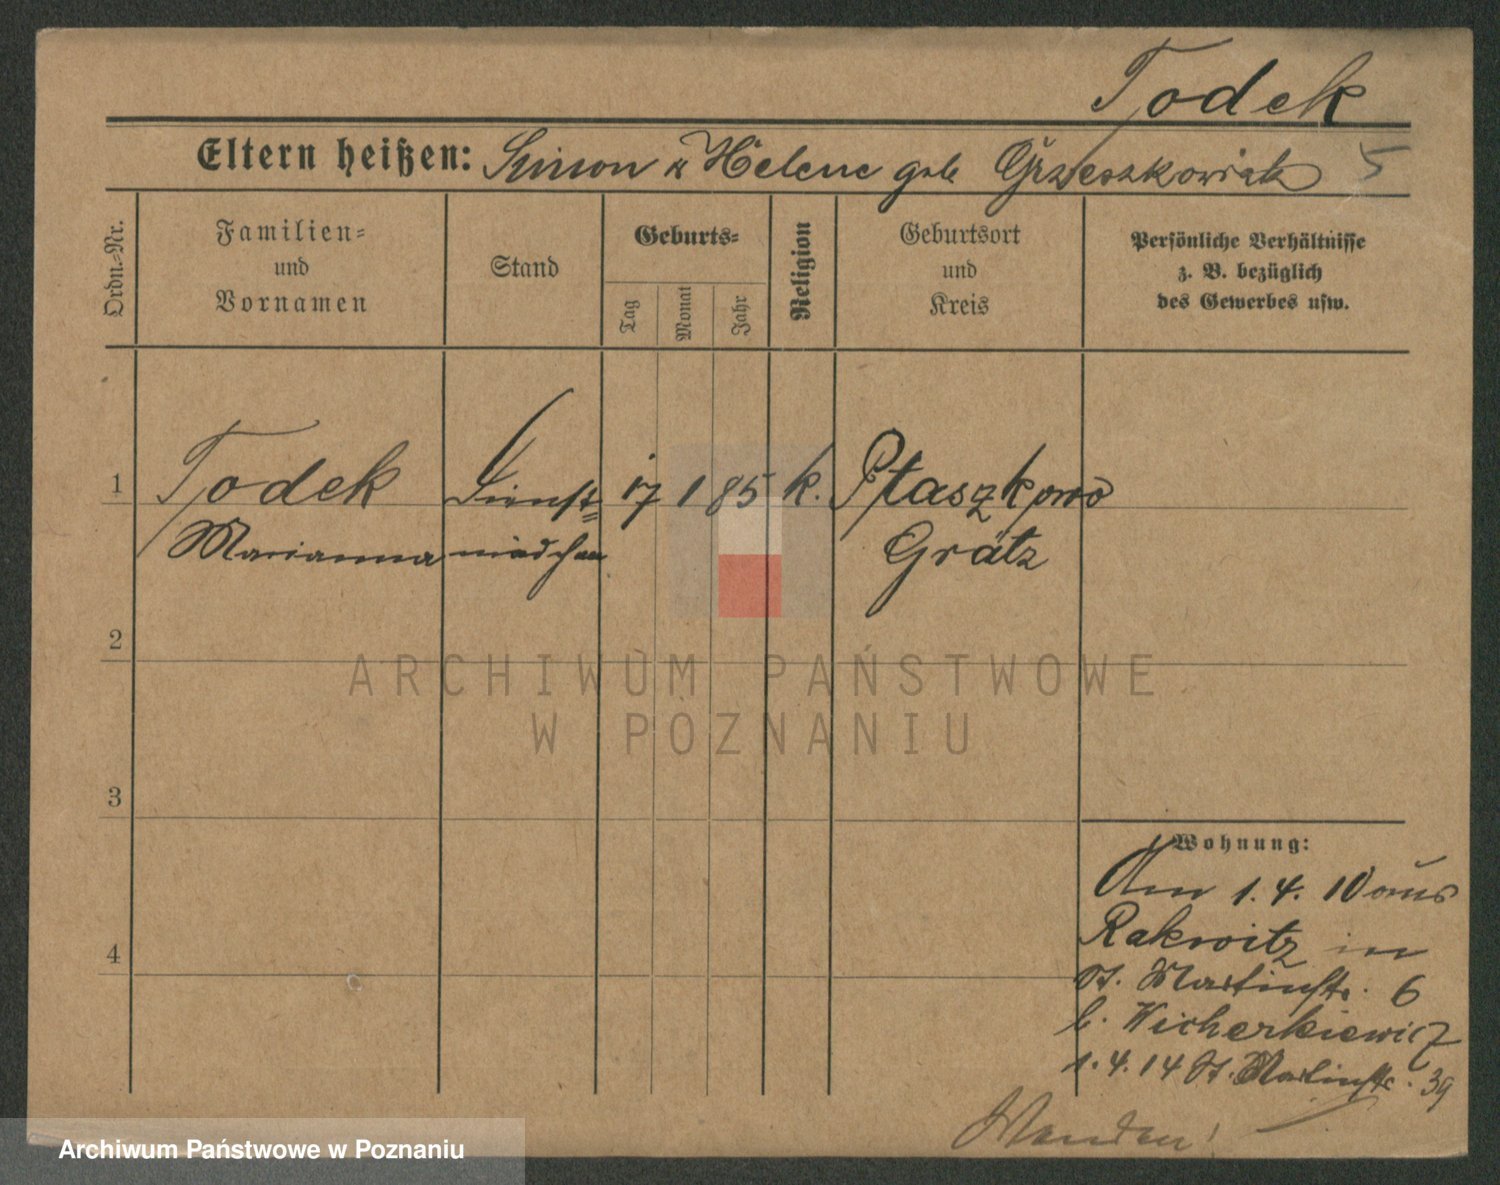 Todek
Eltern heißen: Simon u Helene geb Grzeszkowiak 5
Ordn.-Nr.
Familien-
und
Vornamen
Stand
Geburts-
Tag
Monat
Jahr
Religion
Geburtsort
und
Kreis
Persönliche Verhältnisse
z. B. bezüglich
des Gewerbes usw.
1 Todek Dienst= 17 1 85 k. Ptaszkowo
Marianna mädchen Grätz
2
ARCHIWUM PAŃSTWOWE
W POZNANIU
3
Wohnung:
Am 1.4.10 aus
Rakwitz in
4
St. Martinstr. 6
b. Wicherkiewicz
1.4.14 St. Martinstr. 39
Wenden!
Archiwum Państwowe w Poznaniu